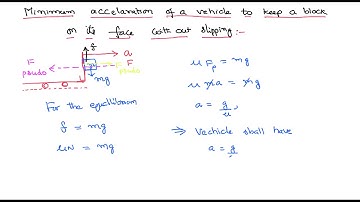 Minimum acceleration of a vehicle to keep a block
on its face with out slipping :-
f
a
F
pseudo
F
pseudo
mg
For the equilibrium
f = mg
μN = mg
μ Fp = mg
μ ma = mg
a = g/μ
⇒ Vechicle shall have
a = g/